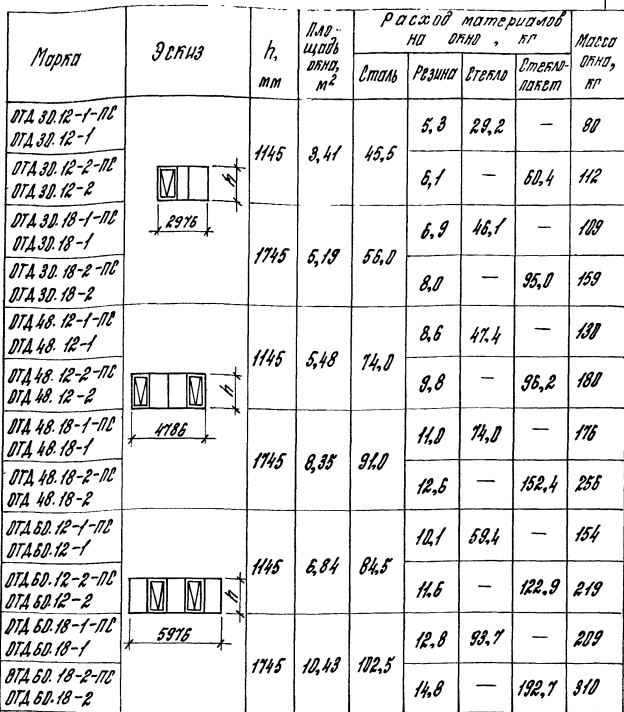 Марка Эскиз h, мм Площадь окна, м² Расход материалов на окно, кг Масса окна, кг
Сталь Резина Стекло Стекло-пакет
ОТД 30.12-1-ПС
ОТД 30.12-1
1145 3,41 45,5 5,3 29,2 — 80
ОТД 30.12-2-ПС
ОТД 30.12-2
6,1 — 60,4 112
h
2976
ОТД 30.18-1-ПС
ОТД 30.18-1
1745 5,19 56,0 6,9 46,1 — 109
ОТД 30.18-2-ПС
ОТД 30.18-2
8,0 — 95,0 159
ОТД 48.12-1-ПС
ОТД 48.12-1
1145 5,48 74,0 8,6 47,4 — 130
ОТД 48.12-2-ПС
ОТД 48.12-2
9,8 — 96,2 180
h
4786
ОТД 48.18-1-ПС
ОТД 48.18-1
1745 8,35 91,0 11,0 74,0 — 176
ОТД 48.18-2-ПС
ОТД 48.18-2
12,6 — 152,4 256
ОТД 60.12-1-ПС
ОТД 60.12-1
1145 6,84 84,5 10,1 59,4 — 154
ОТД 60.12-2-ПС
ОТД 60.12-2
11,6 — 122,9 219
h
5976
ОТД 60.18-1-ПС
ОТД 60.18-1
1745 10,43 102,5 12,8 93,7 — 209
ОТД 60.18-2-ПС
ОТД 60.18-2
14,8 — 192,7 310